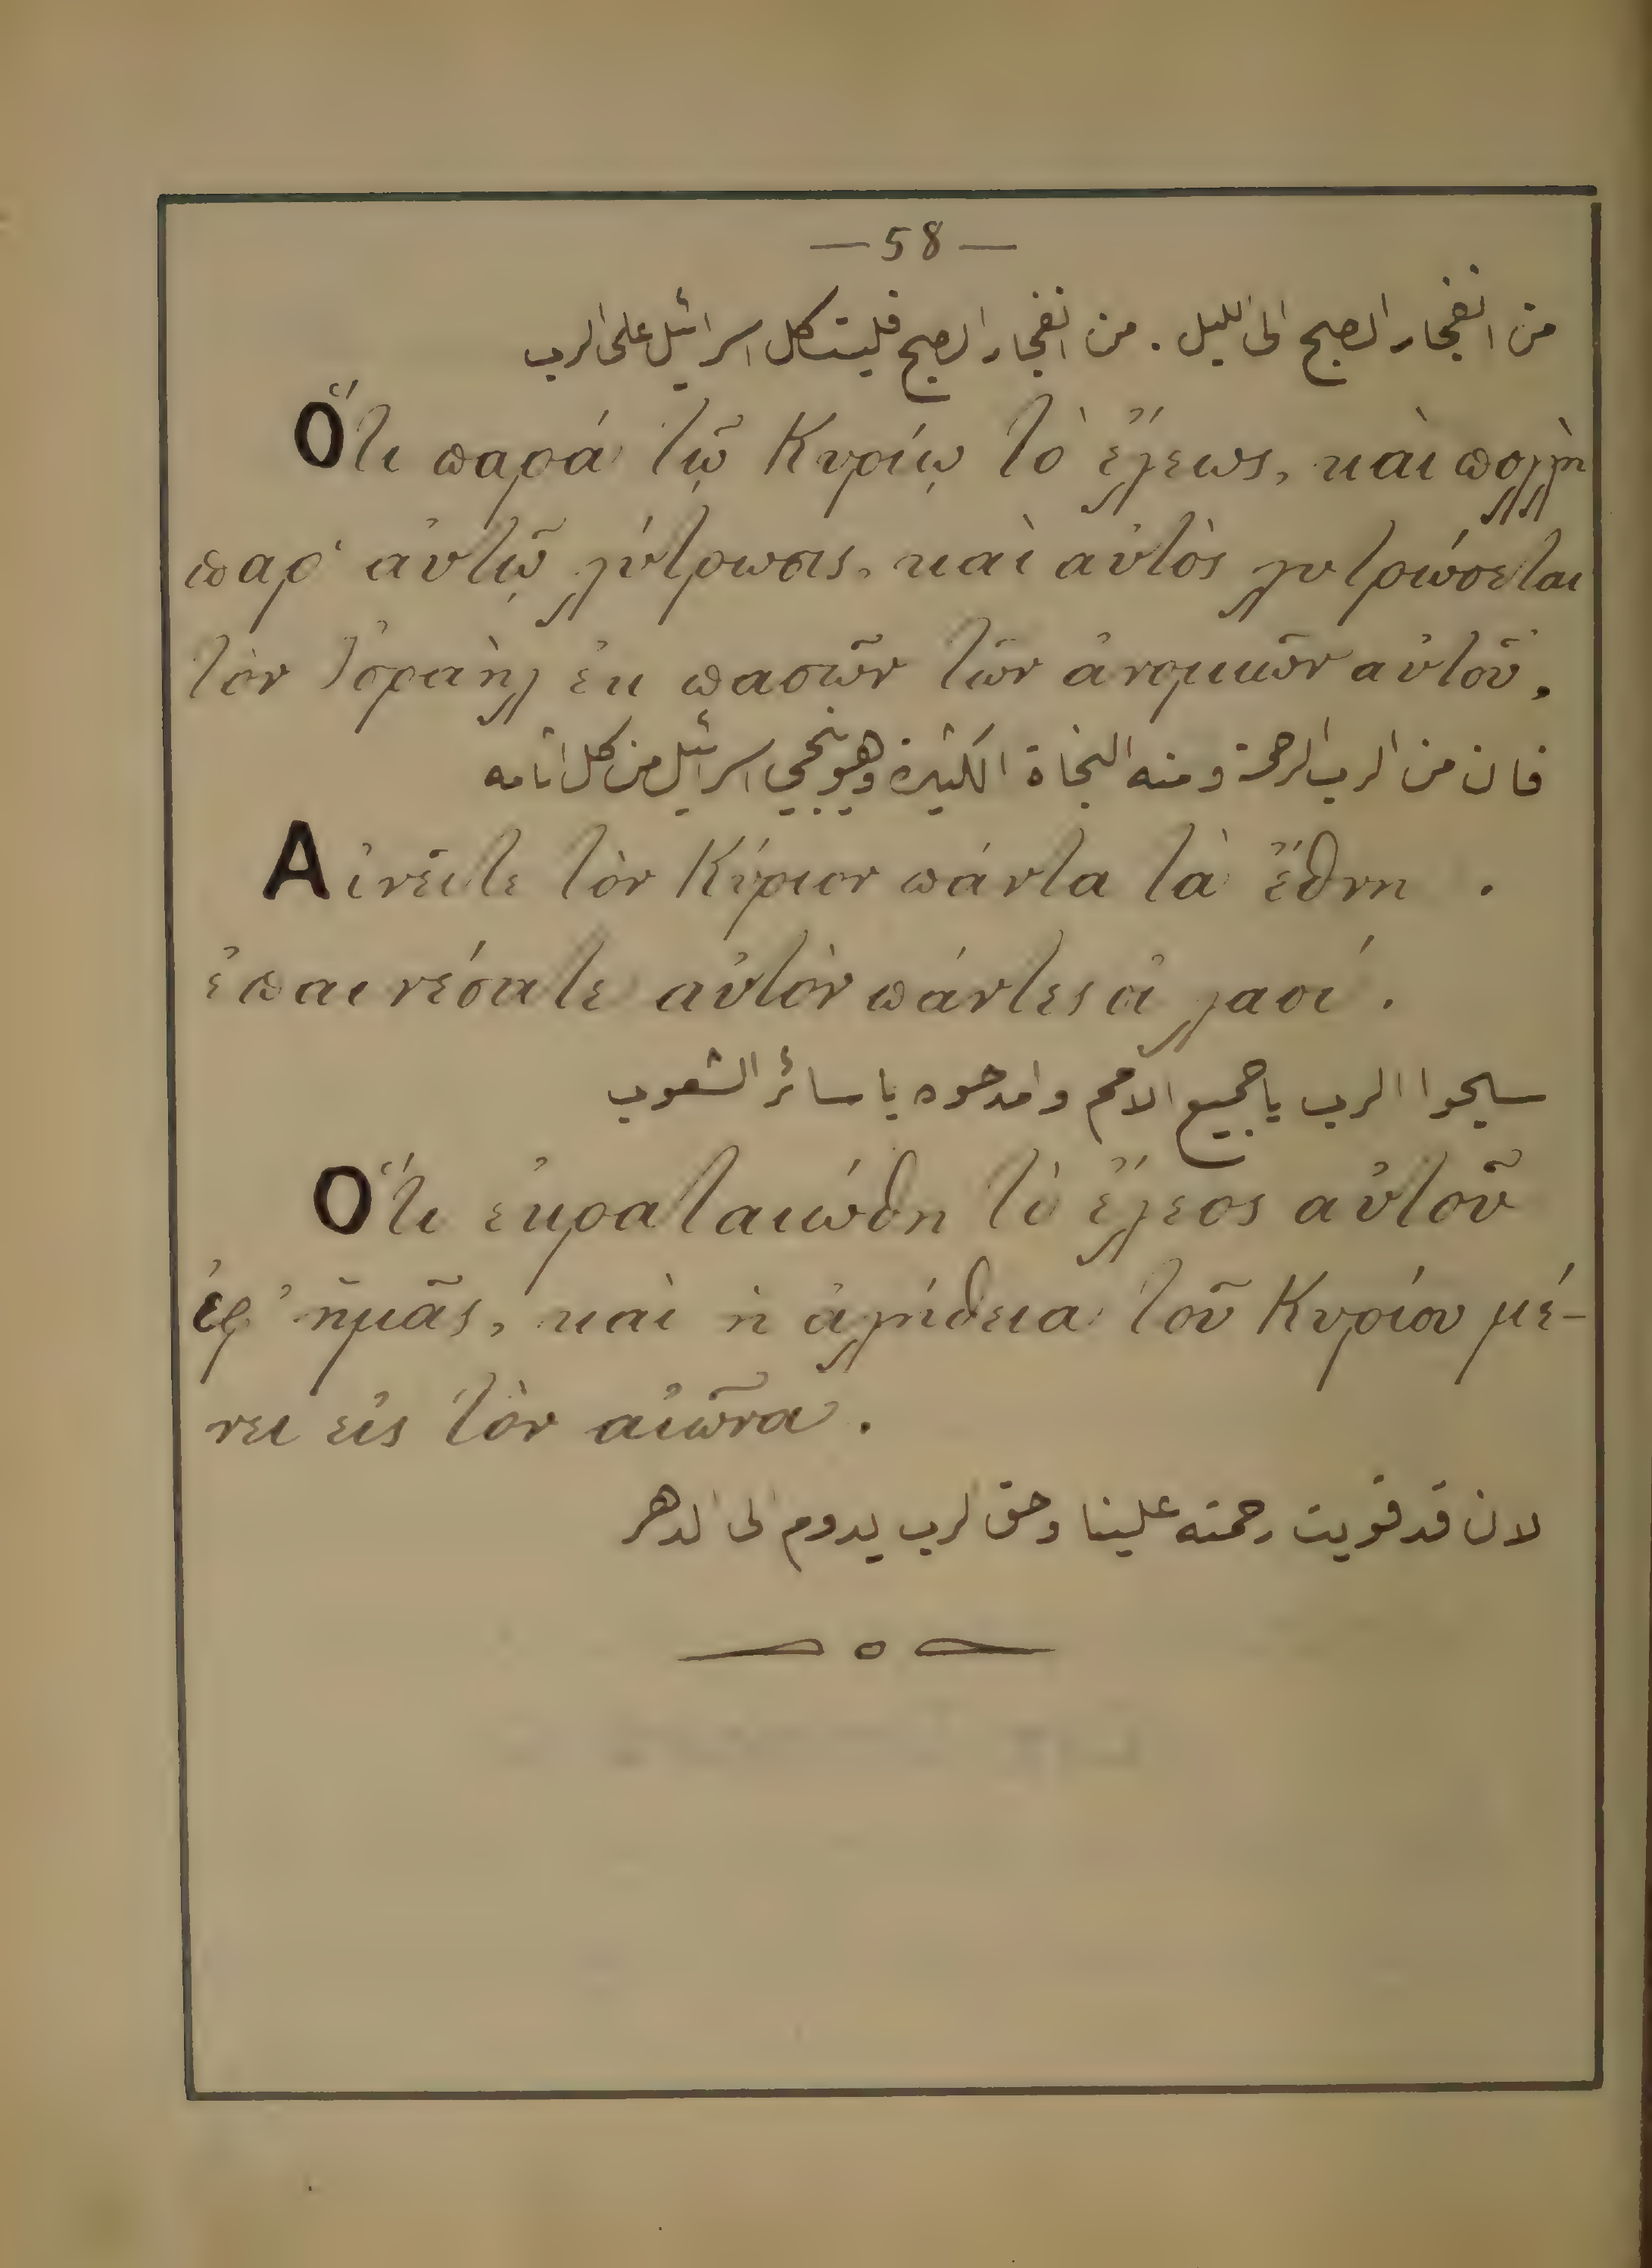 —58—
من انفجار الصبح الى الليل . من انفجار الصبح فليتكل اسرائيل على الرب
Ὅτι παρά τῷ Κυρίῳ τὸ ἔλεως, καὶ πολλὴ
παρ' αὐτῷ λύτρωσις, καὶ αὐτὸς λυτρώσεται
τὸν Ἰσραὴλ ἐκ πασῶν τῶν ἀνομιῶν αὐτοῦ.
فان من الرب الرحمة ومنه النجاة الكثيرة وهو ينجي اسرائيل من كل اثامه
Αἰνεῖτε τὸν Κύριον πάντα τὰ ἔθνη .
ἐπαινέσατε αὐτὸν πάντες οἱ λαοί .
سبحوا الرب يا جميع الامم وامدحوه يا سائر الشعوب
Ὅτι ἐκραταιώθη τὸ ἔλεος αὐτοῦ
ἐφ' ἡμᾶς, καὶ ἡ ἀλήθεια τοῦ Κυρίου μέ-
νει εἰς τὸν αἰῶνα .
لان قد قويت رحمته علينا وحق الرب يدوم الى الدهر